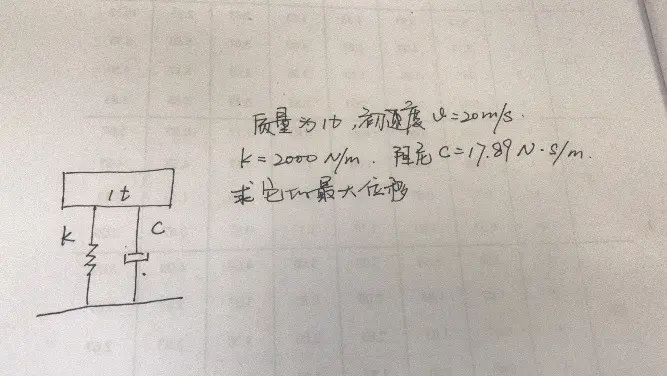 质量为1t,初速度 v=20m/s.
k=2000 N/m. 阻尼 C=17.89 N·s/m.
求它的最大位移
1t
K
C